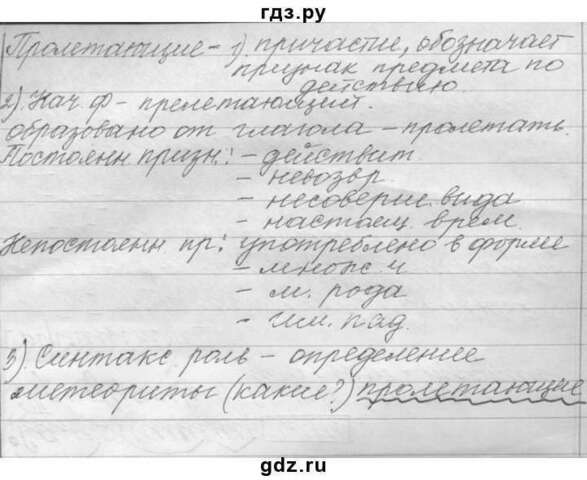 гдз.ру
Пролетающие - 1) причастие, обозначает
признак предмета по
действию.
2) Нач. ф - прелетающий.
образовано от глагола - пролетать.
Постоянн. призн: - действит.
- невозвр.
- несоверш. вида
- настоящ. врем.
Непостоянн. пр: употреблено в форме
- множ. ч
- м. рода
- им. пад.
3) Синтакс. роль - определение
метеориты (какие?) пролетающие
gdz.ru